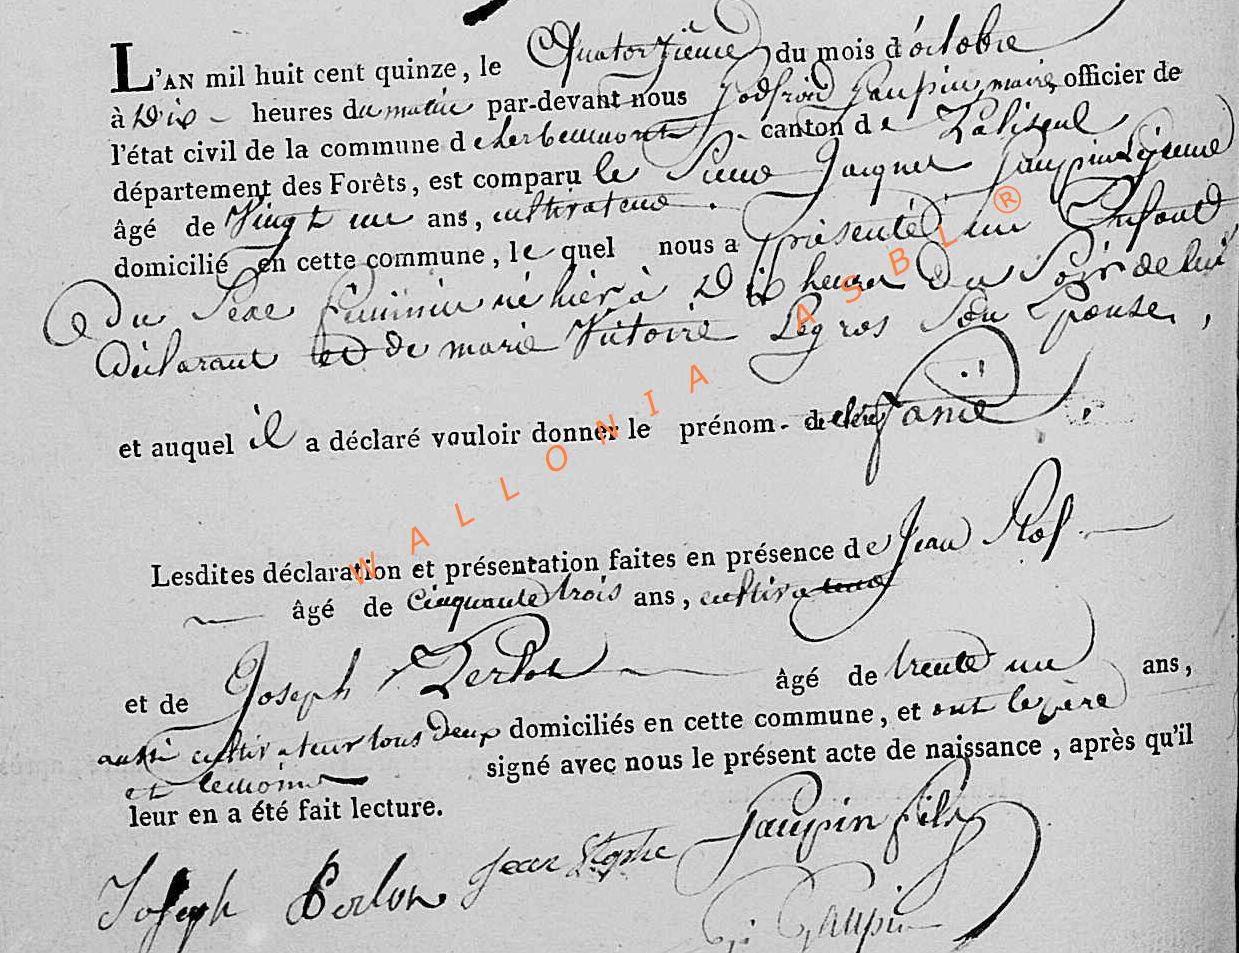 L'AN mil huit cent quinze, le Quatorzieme du mois d'octobre
à Dix heures du matin par-devant nous Godfroid Gaupin, maire officier de
l'état civil de la commune de herbeumont canton de Paliseul
département des Forêts, est comparu le Sieur Jacques Gaupin
âgé de Vingt un ans, cultivateur.
domicilié en cette commune, le quel nous a présenté un Enfant
Du Sexe féminin né hier à Dix heures Du Soir de lui
Déclarant et de marie Victoire Legros Son Epouse,
et auquel il a déclaré vouloir donner le prénom de
Lesdites déclaration et présentation faites en présence de Jean
âgé de cinquante trois ans, cultivateur
et de Joseph Perlot âgé de trente un ans,
aussi cultivateur tous deux domiciliés en cette commune, et ont le père
et temoins signé avec nous le présent acte de naissance, après qu'il
leur en a été fait lecture.
Joseph Jean Gaupin fils
Gaupin
WALLONIA ASBL ®